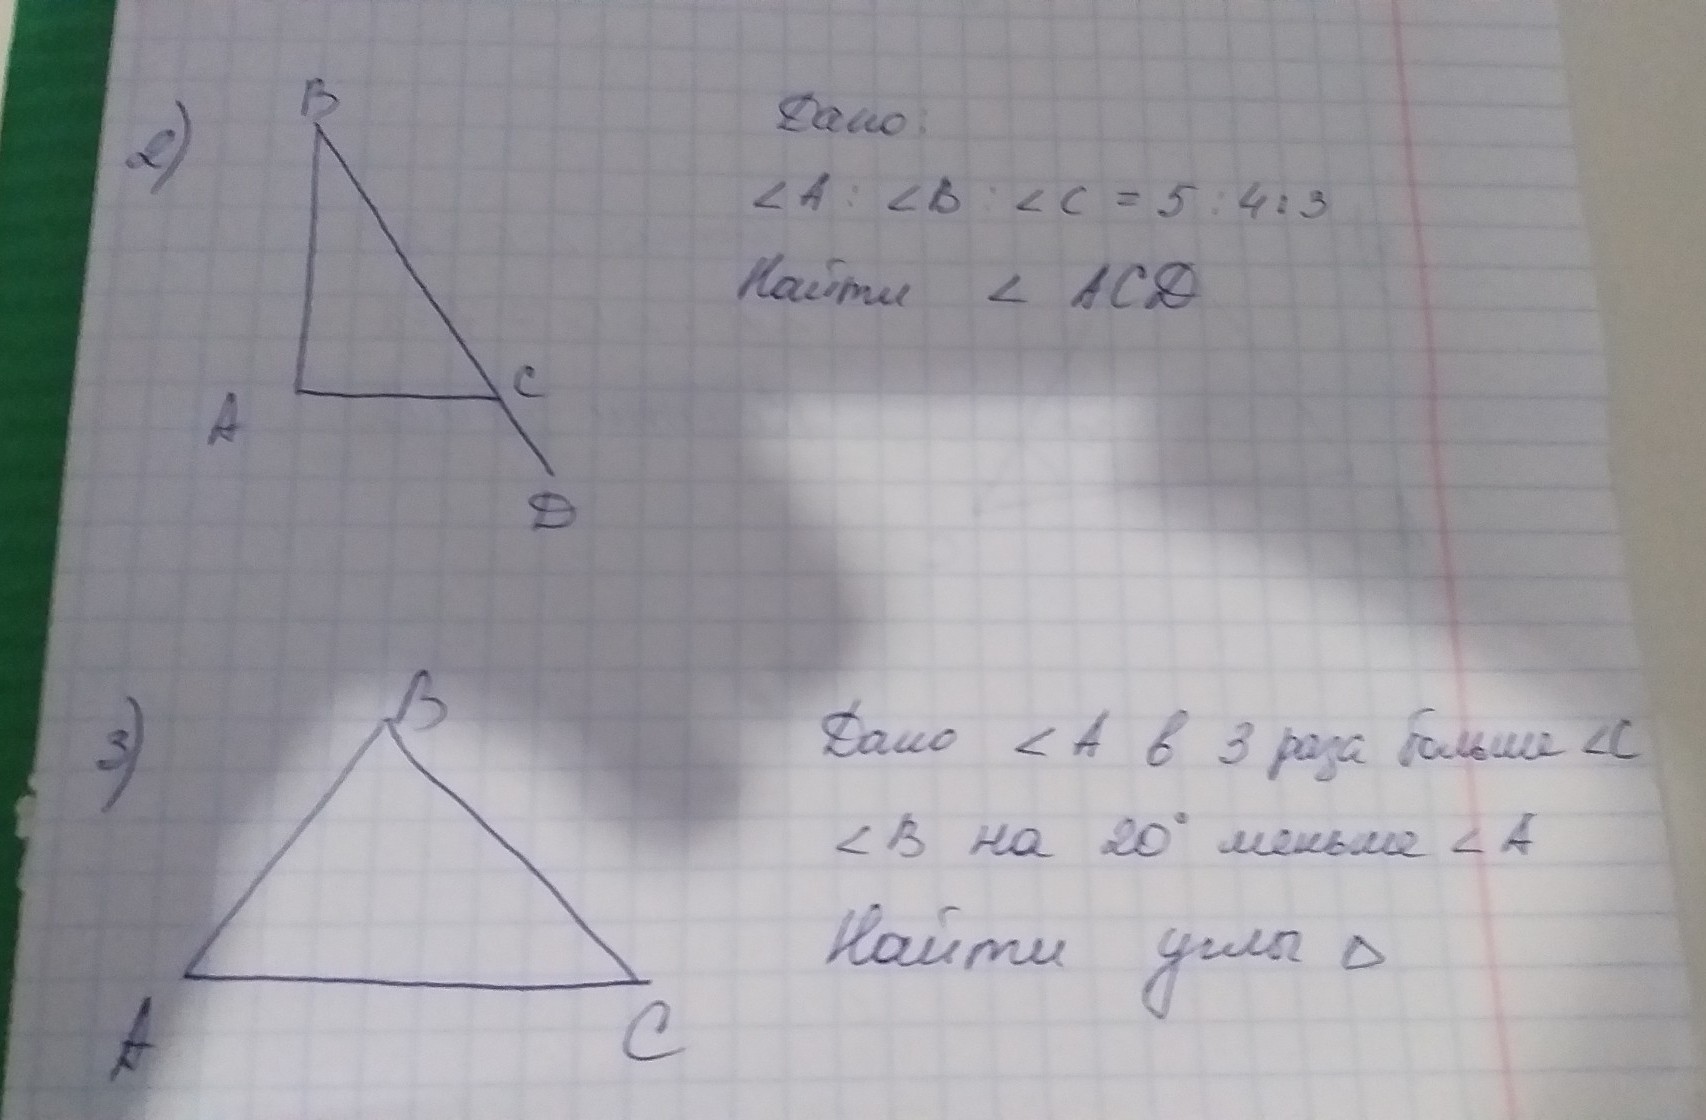 2)
B
A
C
D
Дано:
∠A : ∠B : ∠C = 5 : 4 : 3
Найти ∠ ACD
3)
B
A
C
Дано ∠A в 3 раза больше ∠C
∠B на 20° меньше ∠A
Найти углы △